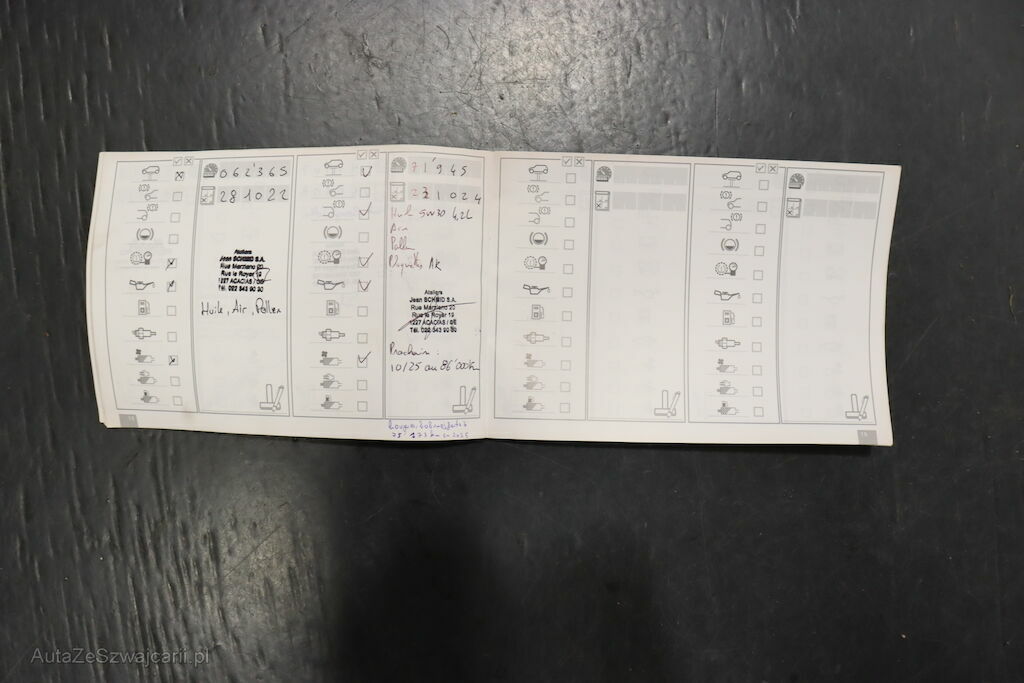 062'365
281022
Ateliers
Jean SCHMID S.A.
Rue Marziano 20
Rue le Royer 19
1227 ACACIAS / GE
Tél. 022 343 90 30
Huile, Air, Pollen
71'945
1024
Huile 5W30 4,2L
Air
Pollen
Plaquettes AR
Ateliers
Jean SCHMID S.A.
Rue Marziano 20
Rue le Royer 19
1227 ACACIAS / GE
Tél. 022 343 90 30
Prochain :
10/25 ou 86'000km
AutaZeSzwajcarii.pl